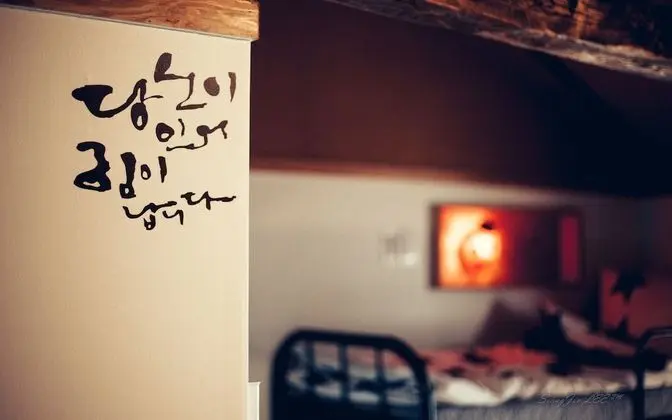 당신이
있어
힘이
납니다